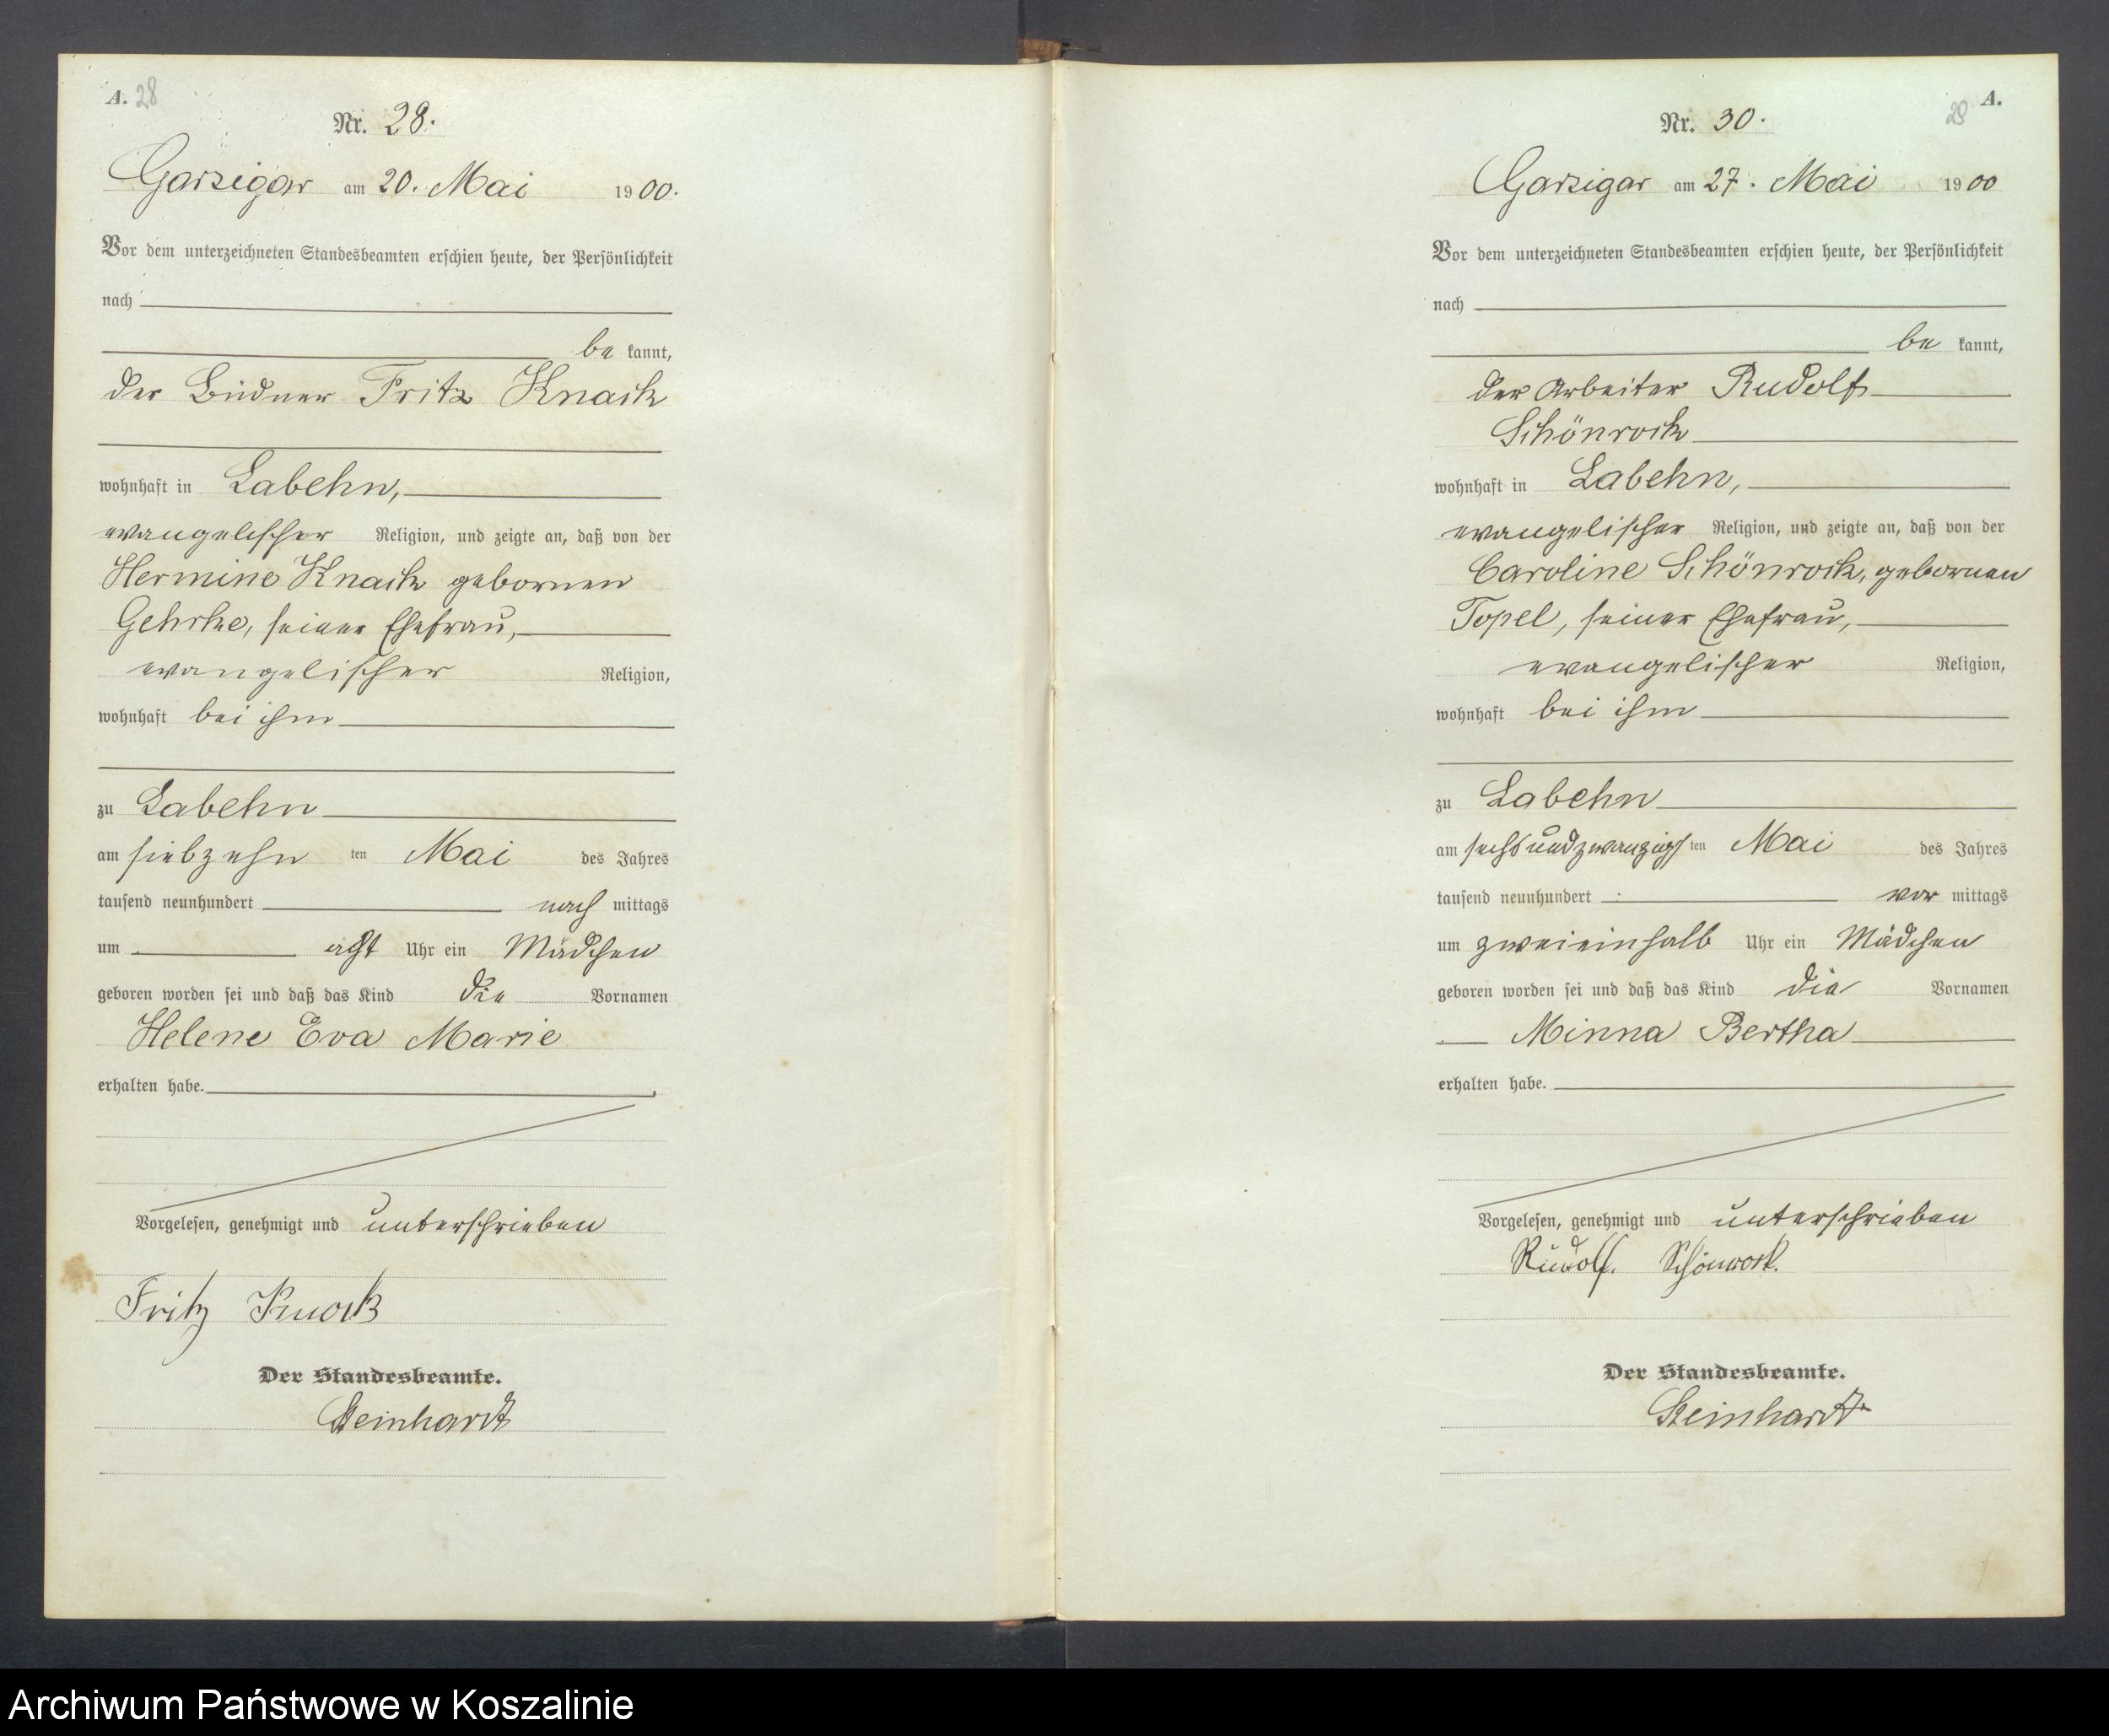 A. 28
Nr. 28.
Garzigar am 20. Mai 1900.
Vor dem unterzeichneten Standesbeamten erschien heute, der Persönlichkeit
nach
be kannt,
der Büdner Fritz Knack
wohnhaft in Labehn,
evangelischer Religion, und zeigte an, daß von der
Hermine Knack gebornen
Gehrke, seiner Ehefrau,
evangelischer Religion,
wohnhaft bei ihm
zu Labehn
am siebzehn ten Mai des Jahres
tausend neunhundert nach mittags
um acht Uhr ein Mädchen
geboren worden sei und daß das Kind die Vornamen
Helene Eva Marie
erhalten habe.
Vorgelesen, genehmigt und unterschrieben
Fritz Knack
Der Standesbeamte.
Steinhardt
29 A.
Nr. 30.
Garzigar am 27. Mai 1900
Vor dem unterzeichneten Standesbeamten erschien heute, der Persönlichkeit
nach
be kannt,
der Arbeiter Rudolf
Schönrock
wohnhaft in Labehn,
evangelischer Religion, und zeigte an, daß von der
Caroline Schönrock, gebornen
Topel, seiner Ehefrau,
evangelischer Religion,
wohnhaft bei ihm
zu Labehn
am sechsundzwanzigsten Mai des Jahres
tausend neunhundert vor mittags
um zweieinhalb Uhr ein Mädchen
geboren worden sei und daß das Kind die Vornamen
Minna Bertha
erhalten habe.
Vorgelesen, genehmigt und unterschrieben
Rudolf. Schönrock.
Der Standesbeamte.
Steinhardt
Archiwum Państwowe w Koszalinie